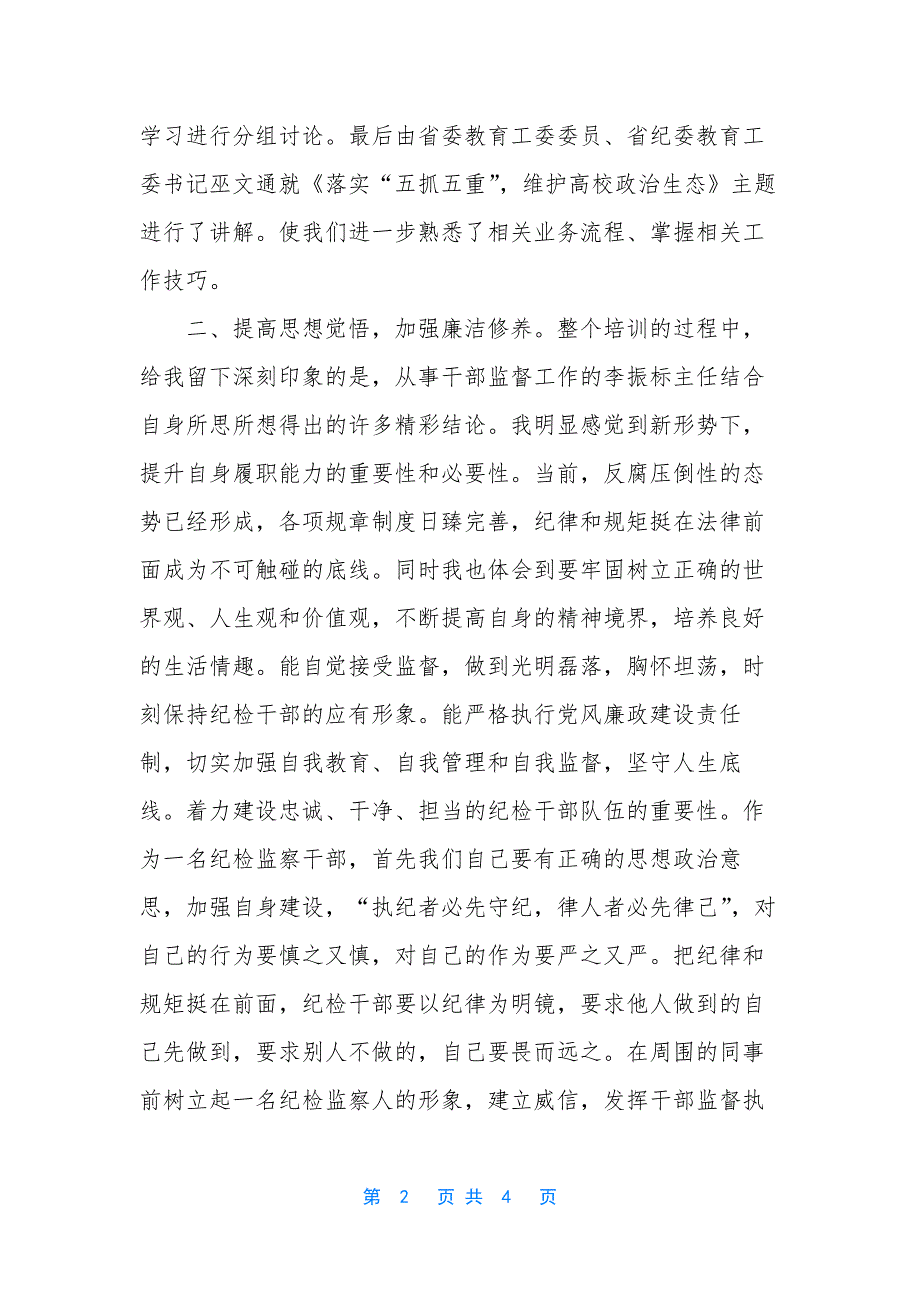 学习进行分组讨论。最后由省委教育工委委员、省纪委教育工
委书记巫文通就《落实“五抓五重”，维护高校政治生态》主题
进行了讲解。使我们进一步熟悉了相关业务流程、掌握相关工
作技巧。
二、提高思想觉悟，加强廉洁修养。整个培训的过程中，
给我留下深刻印象的是，从事干部监督工作的李振标主任结合
自身所思所想得出的许多精彩结论。我明显感觉到新形势下，
提升自身履职能力的重要性和必要性。当前，反腐压倒性的态
势已经形成，各项规章制度日臻完善，纪律和规矩挺在法律前
面成为不可触碰的底线。同时我也体会到要牢固树立正确的世
界观、人生观和价值观，不断提高自身的精神境界，培养良好
的生活情趣。能自觉接受监督，做到光明磊落，胸怀坦荡，时
刻保持纪检干部的应有形象。能严格执行党风廉政建设责任
制，切实加强自我教育、自我管理和自我监督，坚守人生底
线。着力建设忠诚、干净、担当的纪检干部队伍的重要性。作
为一名纪检监察干部，首先我们自己要有正确的思想政治意
思，加强自身建设，“执纪者必先守纪，律人者必先律己”，对
自己的行为要慎之又慎，对自己的作为要严之又严。把纪律和
规矩挺在前面，纪检干部要以纪律为明镜，要求他人做到的自
己先做到，要求别人不做的，自己要畏而远之。在周围的同事
前树立起一名纪检监察人的形象，建立威信，发挥干部监督执
第 2 页 共 4 页